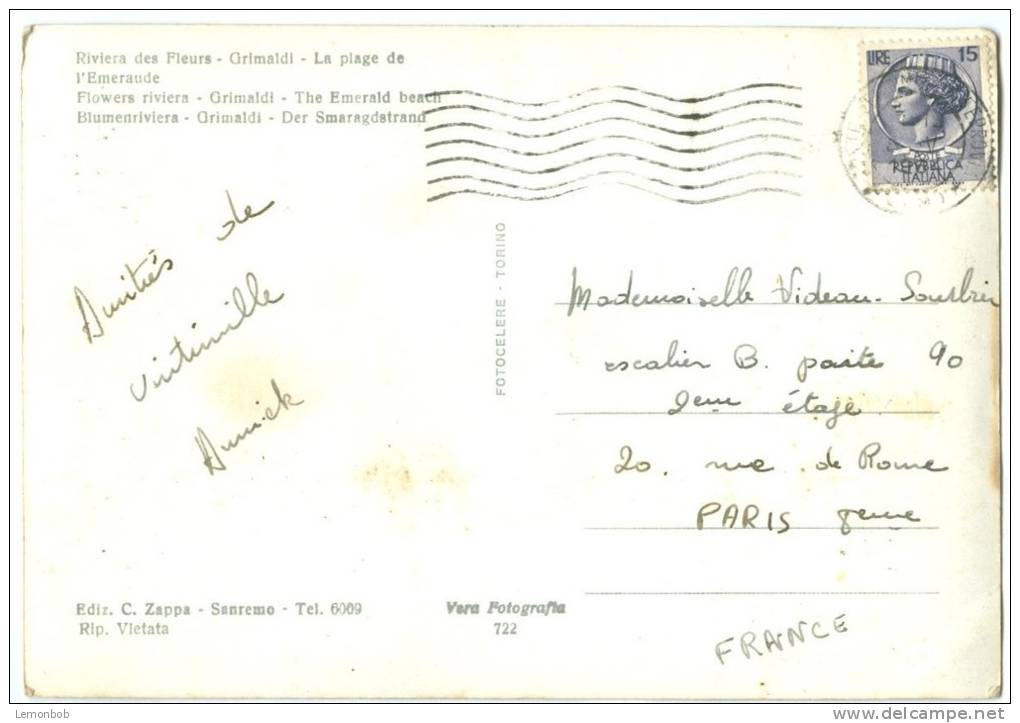 Riviera des Fleurs - Grimaldi - La plage de
l'Emeraude
Flowers riviera - Grimaldi - The Emerald beach
Blumenriviera - Grimaldi - Der Smaragdstrand
LIRE 15
POSTE
REPUBBLICA
ITALIANA
Amitiés de
Vintimille
Annick
FOTOCELERE - TORINO
Mademoiselle Videau-
escalier B. porte 90
2eme étage
20, rue de Rome
PARIS 8eme
FRANCE
Ediz. C. Zappa - Sanremo - Tel. 6009
Rip. Vietata
Vera Fotografia
722
Lemonbob
delcampe.net